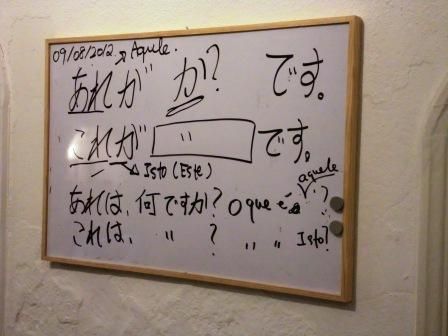 09/08/2012. Aquele.
あれが か? です。
これが 〃 です。
Isto (Este)
aquele
あれは、何ですか? O que é ?
これは、 〃 ? 〃 〃 Isto?